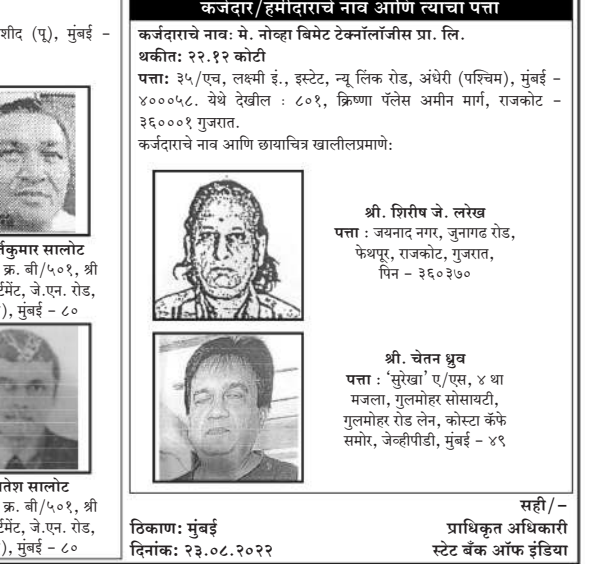 शीद (पू), मुंबई –
र्तकुमार सालोट
क्र. बी/५०१, श्री
र्टमेंट, जे.एन. रोड,
), मुंबई – ८०
तेश सालोट
क्र. बी/५०१, श्री
र्टमेंट, जे.एन. रोड,
), मुंबई – ८०
कर्जदार/हमीदाराचे नाव आणि त्याचा पत्ता
कर्जदाराचे नावः मे. नोव्हा बिमेट टेक्नॉलॉजीस प्रा. लि.
थकीत: २२.१२ कोटी
पत्ता: ३५/एच, लक्ष्मी इं., इस्टेट, न्यू लिंक रोड, अंधेरी (पश्चिम), मुंबई –
४०००५८. येथे देखील : ८०१, क्रिष्णा पॅलेस अमीन मार्ग, राजकोट –
३६०००१ गुजरात.
कर्जदाराचे नाव आणि छायाचित्र खालीलप्रमाणे:
श्री. शिरीष जे. लरेख
पत्ता : जयनाद नगर, जुनागढ रोड,
फेथपूर, राजकोट, गुजरात,
पिन – ३६०३७०
श्री. चेतन ध्रुव
पत्ता : 'सुरेखा' ए/एस, ४ था
मजला, गुलमोहर सोसायटी,
गुलमोहर रोड लेन, कोस्टा कॅफे
समोर, जेव्हीपीडी, मुंबई – ४९
सही/–
ठिकाण: मुंबई प्राधिकृत अधिकारी
दिनांक: २३.०८.२०२२ स्टेट बँक ऑफ इंडिया